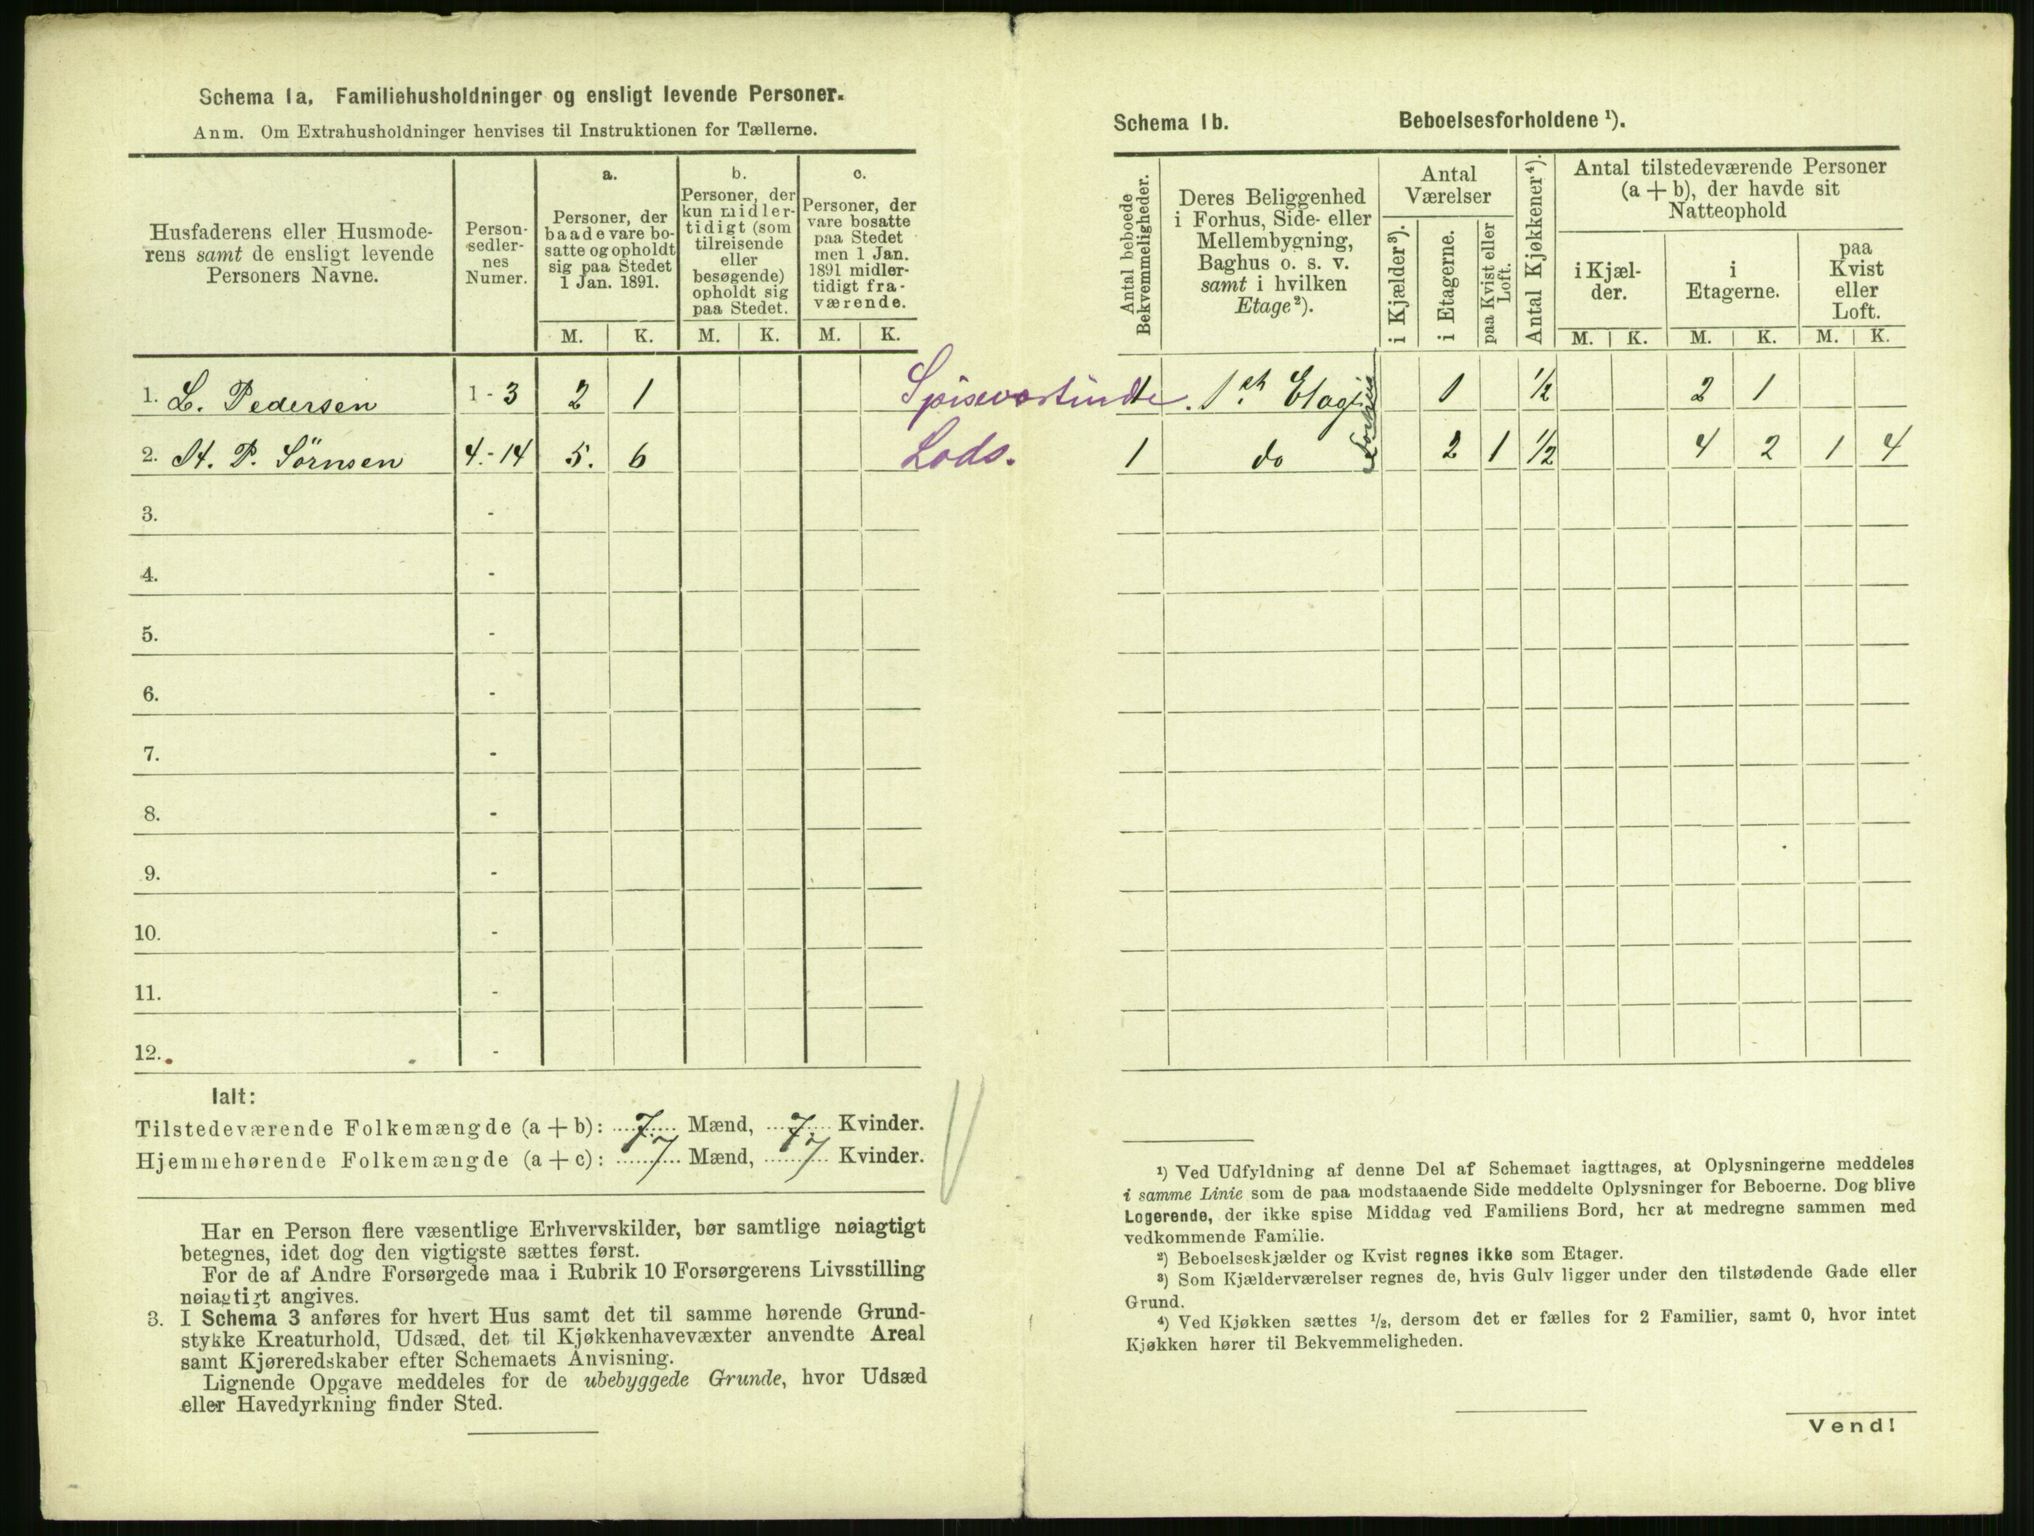 Schema 1a, Familiehusholdninger og ensligt levende Personer.
Anm. Om Extrahusholdninger henvises til Instruktionen for Tællerne.
Husfaderens eller Husmode-
rens samt de ensligt levende
Personers Navne.
Person-
sedler-
nes
Numer.
a.
Personer, der
baade vare bo-
satte og opholdt
sig paa Stedet
1 Jan. 1891.
b.
Personer, der
kun midler-
tidigt (som
tilreisende
eller
besøgende)
opholdt sig
paa Stedet.
c.
Personer, der
vare bosatte
paa Stedet
men 1 Jan.
1891 midler-
tidigt fra-
værende.
M. K. M. K. M. K.
1. L. Pedersen 1 - 3 2 1 Spisevertinde
2. H. P. Sörnsen 4.-14 5. 6 Lods.
3. -
4. -
5. -
6. -
7. -
8. -
9. -
10. -
11. -
12. -
Ialt:
Tilstedeværende Folkemængde (a + b): 7 Mænd, 7 Kvinder.
Hjemmehørende Folkemængde (a + c): 7 Mænd, 7 Kvinder.
Har en Person flere væsentlige Erhvervskilder, bør samtlige nøiagtigt
betegnes, idet dog den vigtigste sættes først.
For de af Andre Forsørgede maa i Rubrik 10 Forsørgerens Livsstilling
nøiagtigt angives.
3. I Schema 3 anføres for hvert Hus samt det til samme hørende Grund-
stykke Kreaturhold, Udsæd, det til Kjøkkenhavevæxter anvendte Areal
samt Kjøreredskaber efter Schemaets Anvisning.
Lignende Opgave meddeles for de ubebyggede Grunde, hvor Udsæd
eller Havedyrkning finder Sted.
Schema 1b. Beboelsesforholdene ¹).
Antal beboede
Bekvemmeligheder.
Deres Beliggenhed
i Forhus, Side- eller
Mellembygning,
Baghus o. s. v.
samt i hvilken
Etage²).
Antal
Værelser
i Kjælder³).
i Etagerne.
paa Kvist eller
Loft.
Antal Kjøkkener⁴).
Antal tilstedeværende Personer
(a + b), der havde sit
Natteophold
i Kjæl-
der.
i
Etagerne.
paa
Kvist
eller
Loft.
M. K. M. K. M. K.
1 1st Etage 1 ½ 2 1
Forhus
1 do 2 1 ½ 4 2 1 4
¹) Ved Udfyldning af denne Del af Schemaet iagttages, at Oplysningerne meddeles
i samme Linie som de paa modstaaende Side meddelte Oplysninger for Beboerne. Dog blive
Logerende, der ikke spise Middag ved Familiens Bord, her at medregne sammen med
vedkommende Familie.
²) Beboelseskjælder og Kvist regnes ikke som Etager.
³) Som Kjælderværelser regnes de, hvis Gulv ligger under den tilstødende Gade eller
Grund.
⁴) Ved Kjøkken sættes ½, dersom det er fælles for 2 Familier, samt 0, hvor intet
Kjøkken hører til Bekvemmeligheden.
Vend!